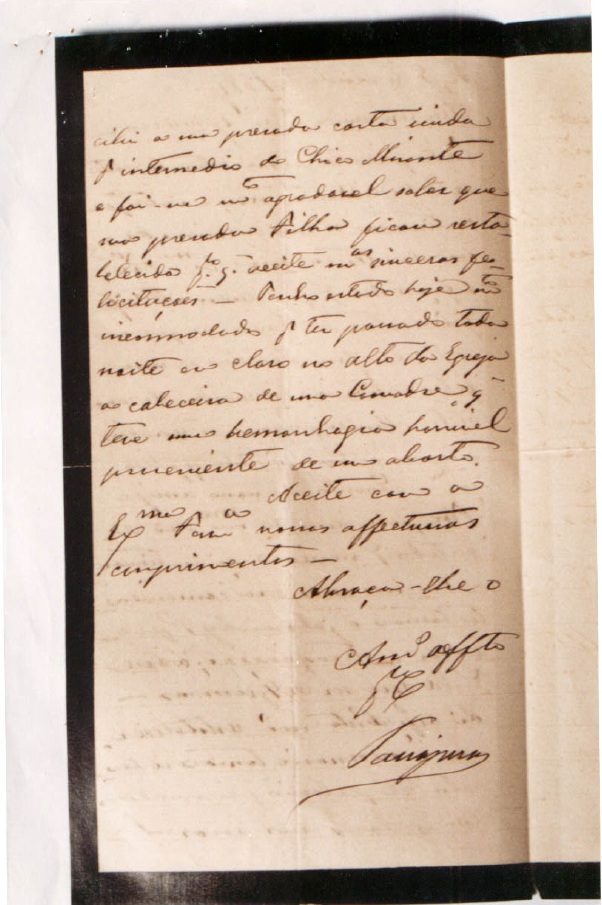 cibi a sua presada carta vinda
pr intermedio do Chico Mirante
e foi-me mto agradavel saber que
sua presada Filha ficou resta-
belecida plo q. aceite mas sinceras fe-
licitações — Tenho estado hoje mto
incommodado pr ter passado toda
noite ao claro no alto da Egreja
a cabeceira de uma Comadre q
teve uma hemorrhagia horrivel
proveniente de um aborto.
Aceite com a
Exma Fama nossos affectuosos
comprimentos —
Abraça-lhe o
Amo affto